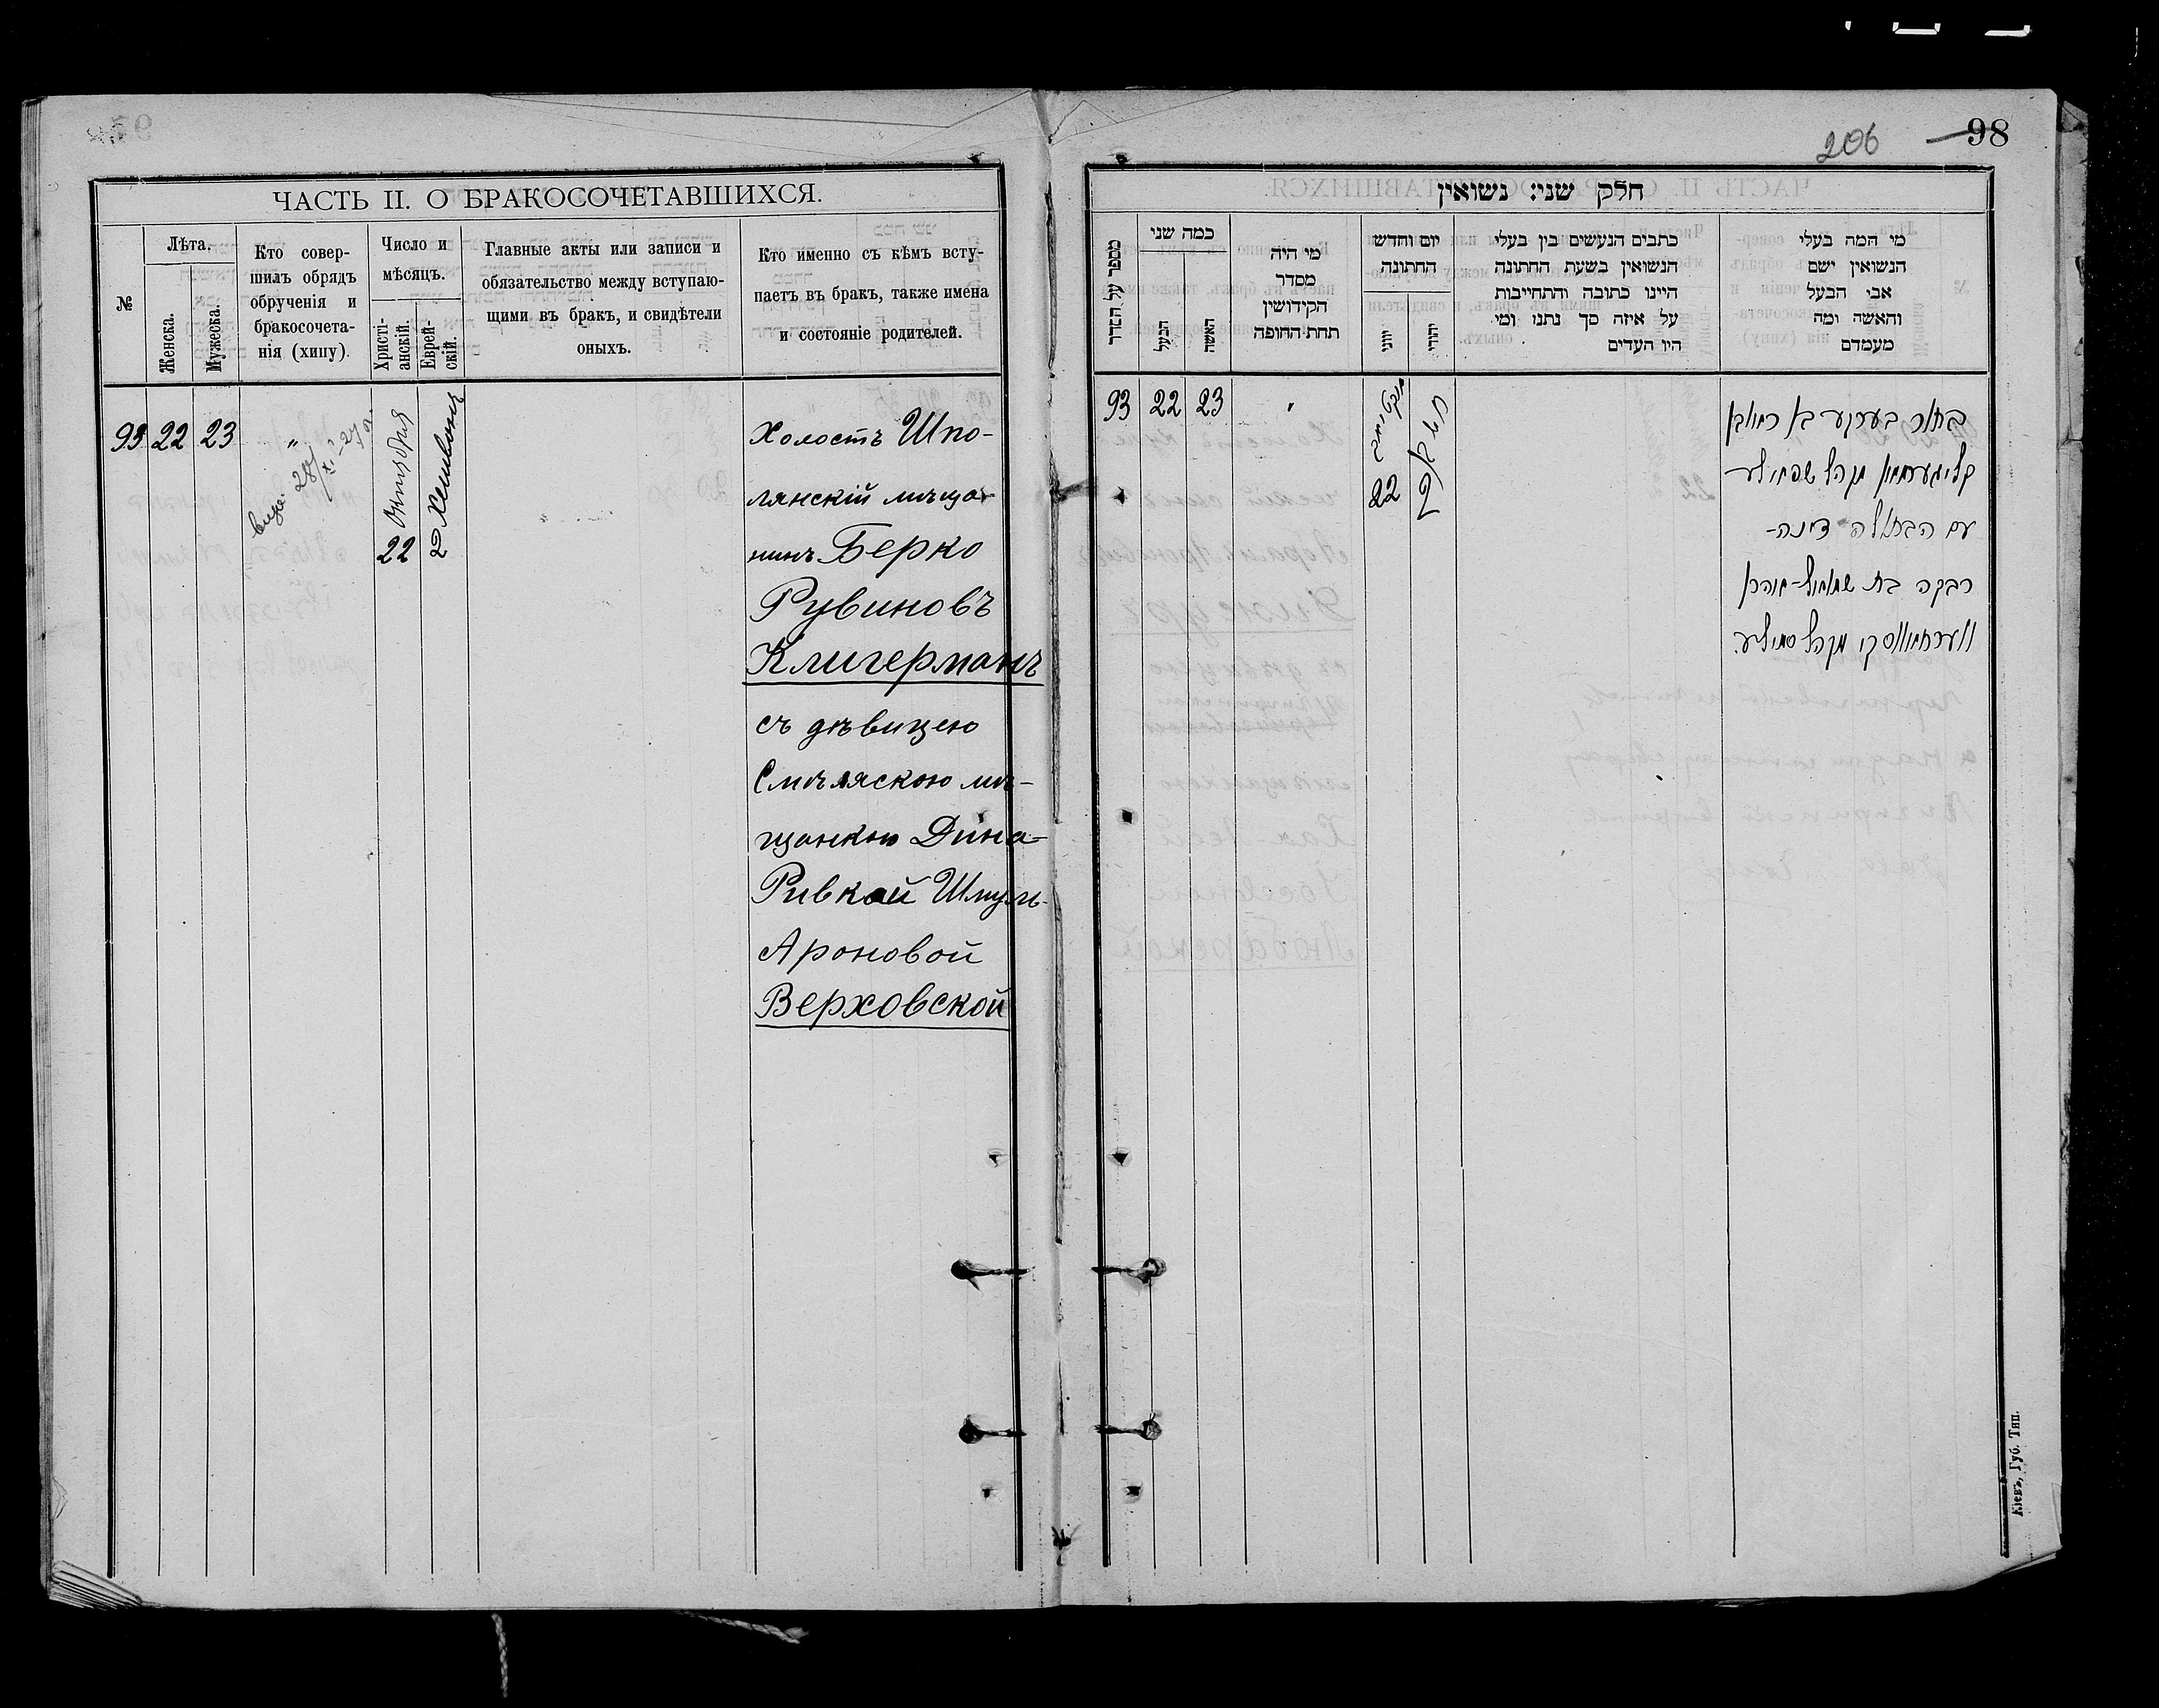 206 98
ЧАСТЬ II. О БРАКОСОЧЕТАВШИХСЯ.
№
Лѣта.
Женска.
Мужеска.
Кто совер-
шилъ обрядъ
обрученія и
бракосочета-
нія (хипу).
Число и
мѣсяцъ.
Христі-
анскій.
Еврей-
скій.
Главные акты или записи и
обязательство между вступаю-
щими въ бракъ, и свидѣтели
оныхъ.
Кто именно съ кѣмъ всту-
паетъ въ бракъ, также имена
и состояніе родителей.
93 22 23 "
Октября
22
Хешвонъ
Холостъ Шпо-
лянскій мѣща-
нинъ Берко
Рувиновъ
Клигерманъ
съ дѣвицею
Смѣляскою мѣ-
щанкою Дина-
Ривкой Шмуль-
Ароновой
Верховской
חלק שני: נשואין
מספר על הסדר
כמה שני
הבעל
האשה
מי היה
מסדר
הקידושין
תחת החופה
יום וחדש
החתונה
יווני
יהודי
כתבים הנעשים בין בעלי
הנשואין בשעת החתונה
היינו כתובה והתחייבות
על איזה סך נתנו ומי
היו העדים
מי המה בעלי
הנשואין ישם
אבי הבעל
והאשה ומה
מעמדם
93 22 23 "
אקטיאבר
22
חשון
בחור בערקע בן ראובן
קליגערמאן מקהל שפאילע
עם הבתולה דינה-
רבקה בת שמואל-אהרן
ווערחאווסקי מקהל סמילע.
Кіевъ, Губ. Тип.